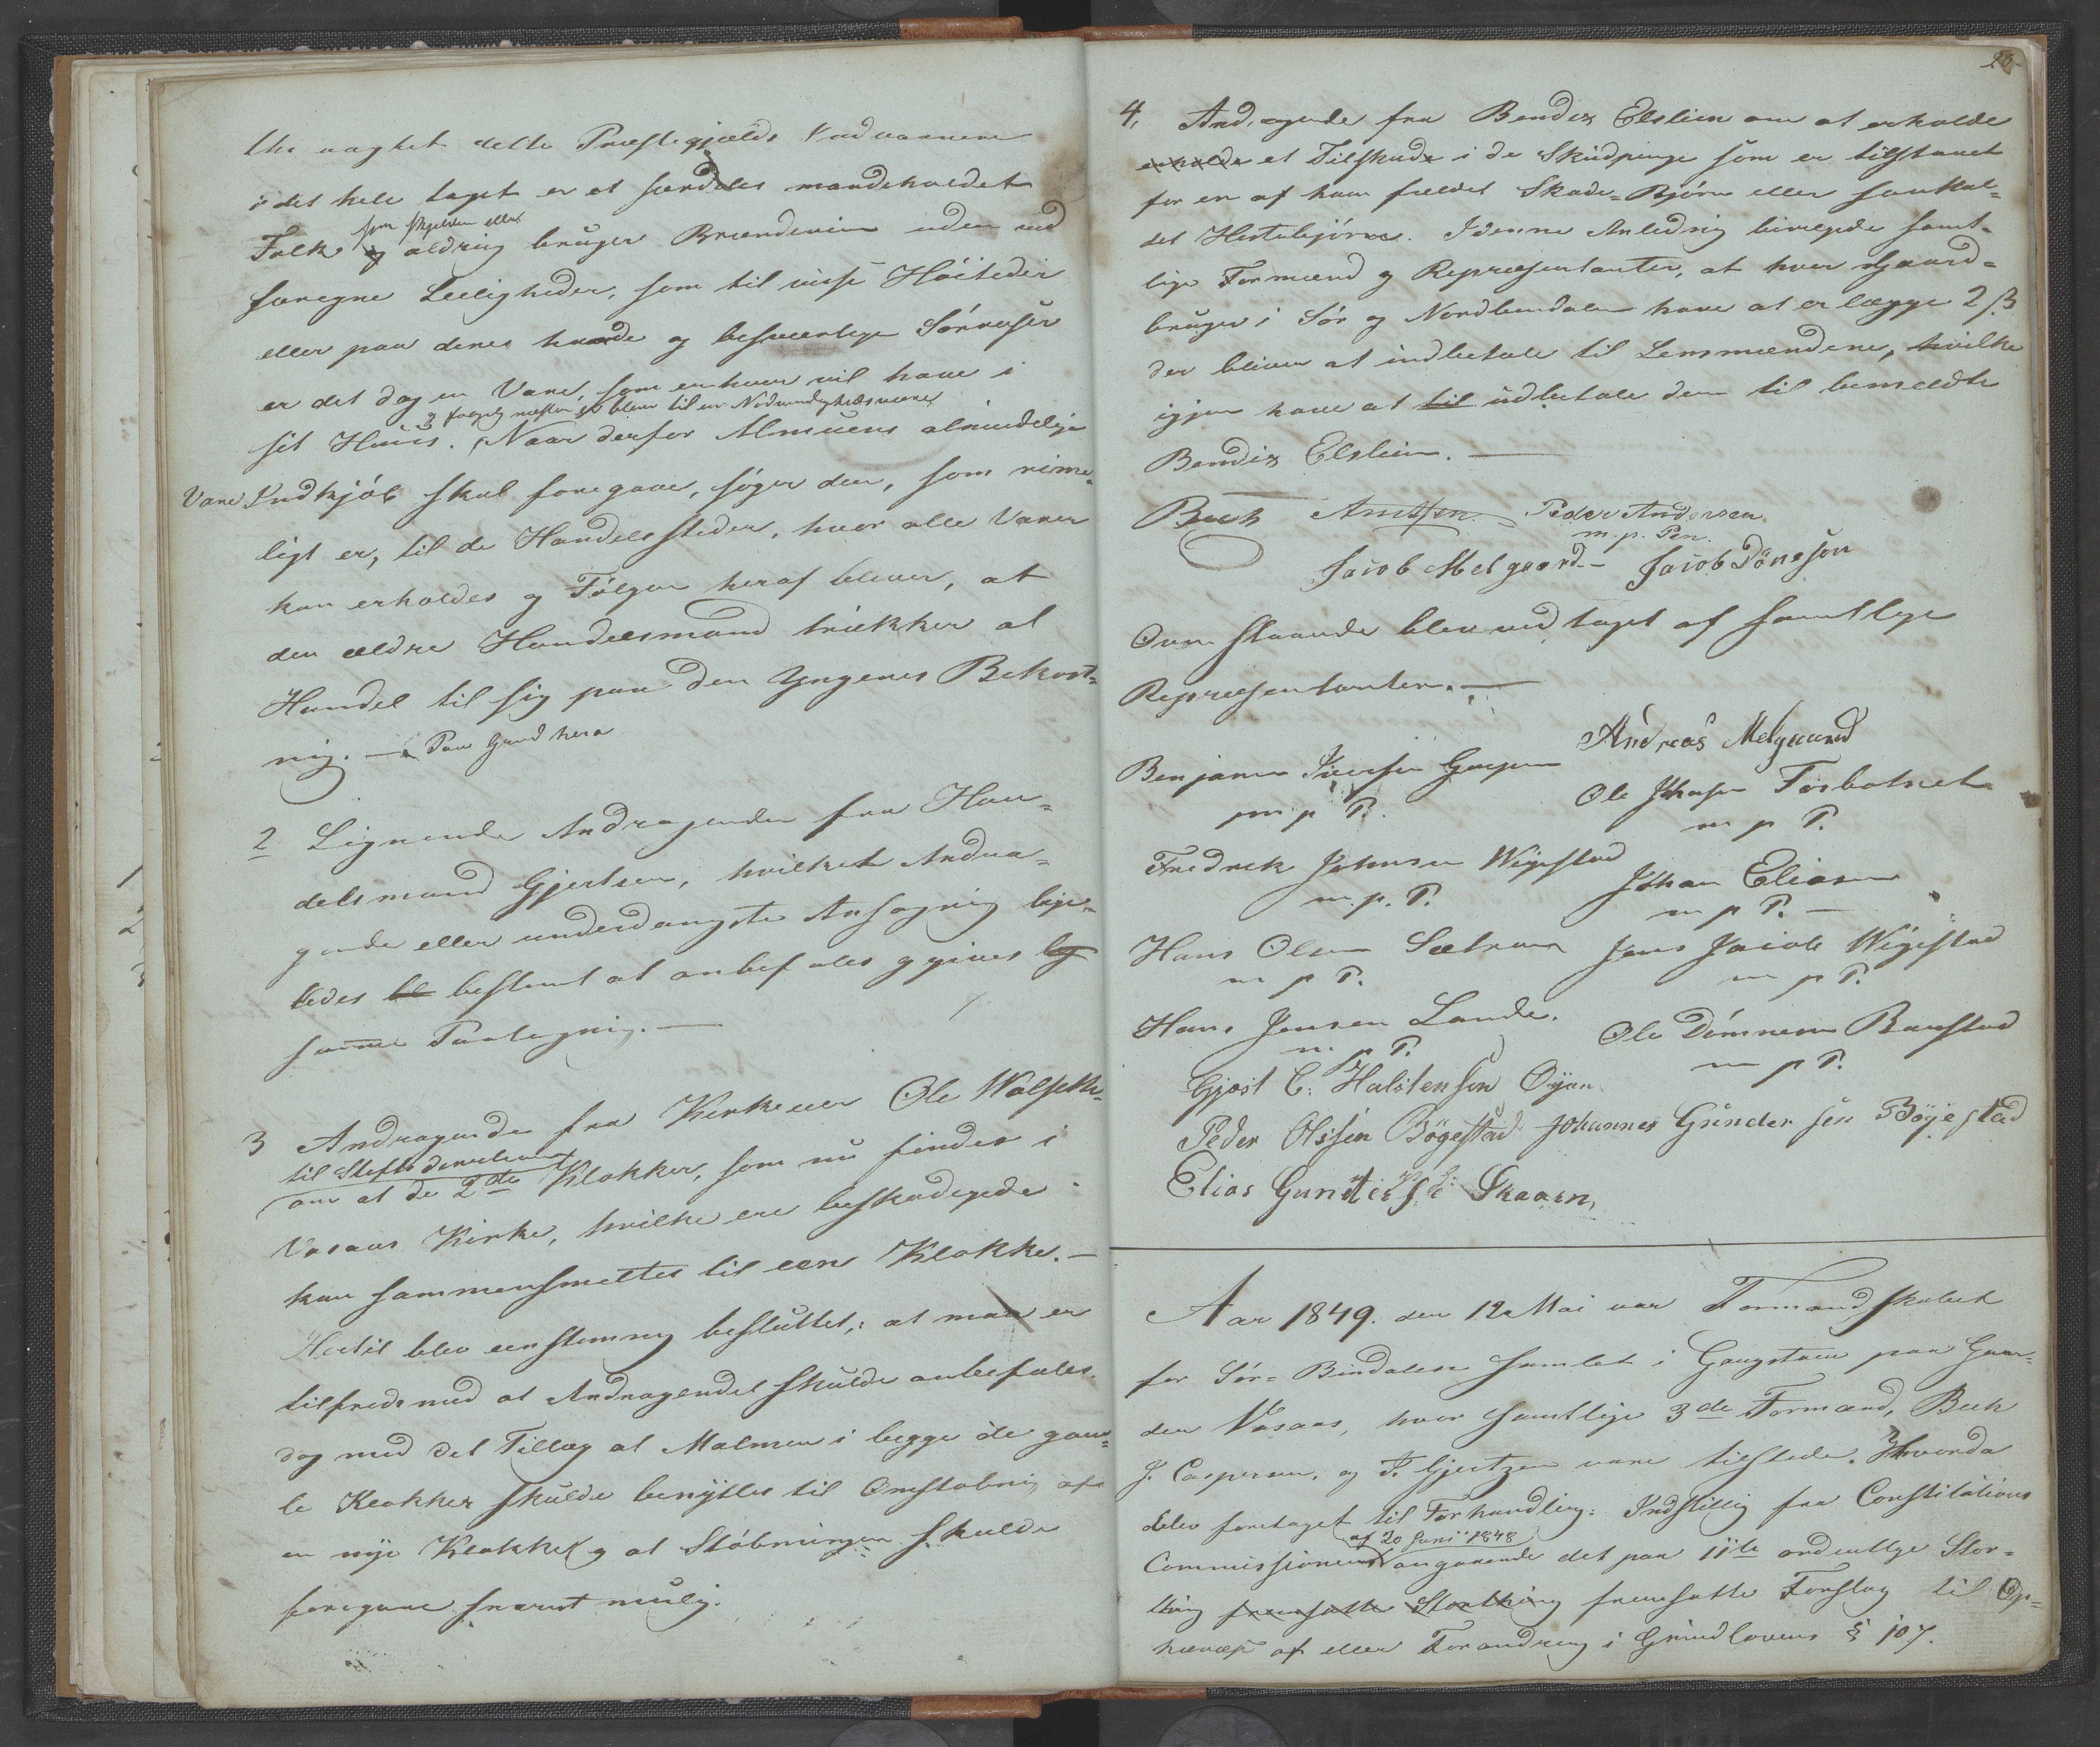 thi uagtet dette Præstegjælds Indvaanere
i det hele taget er et særdeles mandeholdet
som sjelden eller
Folk og aldrig bruger Brændeviin uden ved
særegne Leiligheder, som til visse Høitider
eller paa deres haarde og besværlige Søreiser
er det dog en Vare, som enhver vil have i
og saagodt næsten er bleven til en Nødvendighedsvare
sit Huus. Naar derfor Almuens almindelige
Vare Indkjøb skal foregaae, søger den, som rime-
ligt er, til de Handelssteder, hvor alle Varer
kan erholdes og Følgen heraf bliver, at
den ældre Handelsmand trækker al
Handel til sig paa den Yngres Bekost-
ning. — Paa Grund hera
2 Lignende Andragende fra Han-
delsmand Gjertsen, hvilket Andra-
gende eller underdanigste Ansøgning lige-
ledes bl bestemt at anbefales og gives
samme Paategning. —
3 Andragende fra Kirkeeier Ole Wolseth
til Stiftsdirectionen
om at de 2de Klokker, som nu findes i
Vasaas Kirke, hvilke ere beskadigede
kan sammensmeltes til een Klokke. —
Hertil blev eenstemmig besluttet: at man er
tilfreds med at Andragendet skulde anbefales.
dog med det Tillæg at Malmen i begge de gam-
le Klokker skulde benyttes til Omstøbning af
en nye Klokke og at Støbningen skulde
foregaae snarest mulig.
23
4, Andragende fra Bendix Elslien om at erholde
erholde et Tilskud i de Skudpenge som er tilstaaet
for en af ham fældet Skade-Bjørn eller saakal-
det Hestebjørn. I denne Anledning bevægede samt-
lige Formænd og Repræsentanter, at hver Gaard-
bruger i Sør og Nordbindalen have at erlægge 2 ß
der bliver at indbetale til Lensmændene, hvilke
igjen have at til udbetale dem til bemeldte
Bendix Elslien. —
Bech Arntsen Peder Andersen
m. p. Pen.
Jacob Melgaard — Jacob Dønesson
Ovenstaaende blev vedtaget af samtlige
Repræsentanter. —
Andreas Melgaard
Benjamin Iversen
m p P.
Ole Johnsen Forbotnet
m p P.
Fredrek Johnsen Wigestad
m. p. P.
Johan Eliasen
m p P. —
Hans Olsen Sætran
m p P.
Jens Jacob Wigestad
m p P.
Hans Jensen Lande.
m. p P.
Ole Dømnesen Baustad
m p P.
Gjøst C. Halstensen Øyen
Peder Olssen Bøgestad Johannes Gunder sen Bøgestad
Elias Gundersen Skaaen,
Aar 1849. den 12 Mai var Formandskabet
for Sør-Bindalen samlet i Gangstuen paa Gaar-
den Vasaas, hvor samtlige 3de Formænd, Bech
J. Caspersen, og P. Gjertzen vare tilstede. Hvorda
blev foretaget til Forhandling: Indstilling fra Constitutions
af 20 Juni 1848
Commissionen angaaende det paa 11te ordentlige Stor-
thing fremsatte Storthing fremsatte Forslag til Op-
hævelse af eller Forandring i Grundlovens § 107.